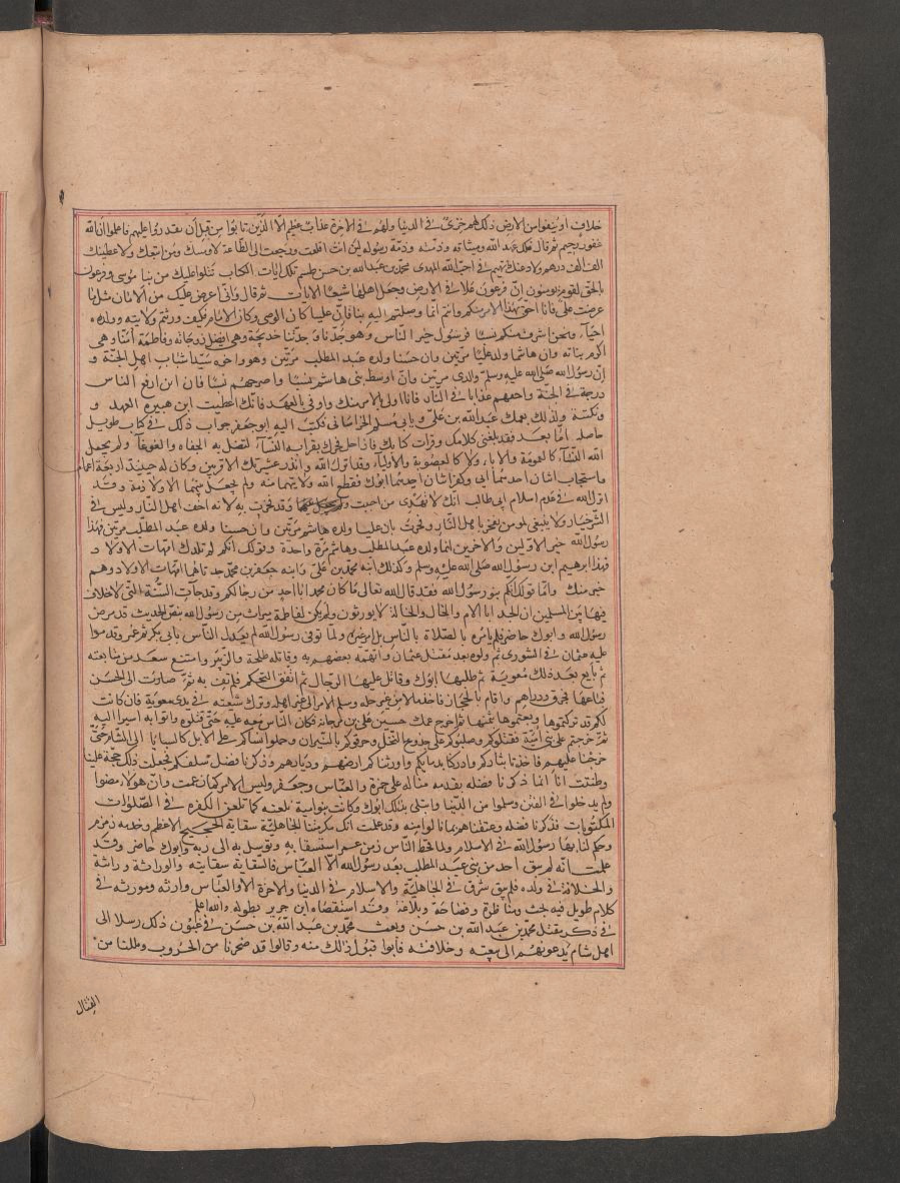 خلاف او ينفوا من الارض ذلك لهم خزى فى الدنيا ولهم فى الاخرة عذاب عظيم الا الذين تابوا من قبل ان تقدروا عليهم فاعلموا ان الله
غفور رحيم ثم قال فلك عهد الله وميثاقه وذمته وذمة رسوله لين انت اقلعت ورجعت الى الطاعة لاومنك ومن اتبعك ولاعطينك
الف الف درهم ولادعنك تقيم فى احب الله المهدى محمد بن عبد الله بن حسن طسم تلك ايات الكتاب نتلوا عليك من نبا موسى وفرعون
بالحق لقوم يومنون ان فرعون علا فى الارض وجعل اهلها شيعا الايات ثم قال وانى اعرض عليك من الامان مثل ما
عرضت على فانا احق بهذا الامر منكم وانتم انما وصلتم اليه بنا فان عليا كان الوصى وكان الامام فكيف ورثتم ولايته وولده
احياء ونحن اشرف منكم نسبا فرسول خير الناس وهو جدنا وجدتنا خديجة وهى افضل زوجاته وفاطمة امنا وهى
اكرم بناته وان هاشما ولد عليا مرتين وان حسنا ولده عبد المطلب مرتين وهو واخوه سيدا شباب اهل الجنة و
ان رسول الله صلى الله عليه وسلم والدى مرتين وان اوسط بنى هاشم نسبا واصرحهم نسبا فان ابن ارفع الناس
درجة فى الجنة واخفهم عذابا فى النار فانا اولى بالامر منك واوفى بالعهد فانك اعطيت ابن هبيره العهد و
ونكثة ولذلك بعمك عبد الله بن على وبابى مسلم الخراسانى فكتب اليه ابو جعفر جواب ذلك فى كتاب طويل
حاصله اما بعد فقد بلغنى كلامك وقرات كتابك فاذا جل فخرك بقرابه النساء لتضل به الجفاه والغوغا ولم يجعل
الله النساء كالعمومة والاباء ولا كالعصوبة والاولياء وقد انزل الله وانذر عشيرتك الاقربين وكان له حينيذ اربعة اعمام
فاستجاب اثنان احدهما ابى وكفر اثنان احدهما ابوك فقطع الله ولايتهما منه ولم يجعل بينهما الا ولا ذمة وقد
انزل الله فى عدم اسلام ابى طالب انك لا تهدى من احببت وقد فخرت به لانه اخف اهل النار وليس فى
الشر خيار ولا ينبغى لمومن يفخر باهل النار وفخرت بان عليا ولده هاشم مرتين وان حسنا ولده عبد المطلب مرتين فهذا
رسول الله خير الاولين والاخرين انما ولده عبد المطلب وهاشم مرة واحدة وقولك انكم لم تلدك امهات الاولاد و
فهذا ابرهيم ابن رسول الله صلى الله عليه وسلم وكذلك ابنه محمد بن على وابنه جعفر بن محمد جداتهما امهات الاولاد وهم
خير منك واما قولك انكم بنو رسول الله فقد قال الله تعالى ما كان محمد ابا احد من رجالكم وقد جات السنة التى لا خلاف
فيها بين المسلمين ان الجد ابا الام والخال والخالة لا يورثون ولم يكن لفاطمة ميراث من رسول الله بنص الحديث وقد مرض
رسول الله وابوك حاضر فلم يامره بالصلاة بالناس بل امر غيره ولما توفى رسول الله لم يعدل الناس بابى بكر ثم عمر وقدموا
عليه عثمان فى الشورى ثم ولوه بعد مقتل عثمان واتهمه بعضهم به وقاتله طلحة والزبير وامتنع سعد من مبايعته
ثم بايع بعد ذلك معوية ثم طلبها ابوك وقاتل عليها الرجال ثم اتفق التحكيم فلم يف به ثم صارت الى الحسن
فباعها بخرق ودراهم واقام بالحجاز فاخذ مالا من غير حله وسلم الامر الى غير اهله وترك شيعته فى يدى معوية فان كانت
لكم فقد تركتموها وبعتموها بثمنها ثم خرج عمك حسين على بن مرجانه فكان الناس معه عليه حتى قتلوه واتوا به اسيرا اليه
ثم خرجتم على بنى امية فقتلوكم وصلبوكم على جذوع النخل وحرقوكم بالنيران وحملوا نساكم على الابل كالسبايا الى الشام حتى
خرجنا عليهم فاخذنا بثاركم وادركنا بدمايكم واورثناكم ارضهم وديارهم وذكرنا فضل سلفكم فجعلت ذلك حجة علينا
وظننت انا انما ذكرنا فضله بقدمه مناله على حمزة والعباس وجعفر وليس الامر كما زعمت وان هولاء مضوا
ولم يدخلوا فى الفتن وسلموا من الدنيا وابتلى بذلك ابوك وكانت بنو امية تلعنه كما تلعن الكفرة فى الصلوات
المكتوبات فذكرنا فضله وعنفناهم بما نالوا منه وقد علمت انك مكرمتنا الجاهلية سقاية الحجيج الاعظم وخدمه زمزم
وحكم لنا بها رسول الله فى الاسلام ولما قحط الناس زمن عمر استسقا به وتوسل به الى ربه وابوك حاضر وقد
علمت انه لم يبق احد من بنى عبد المطلب بعد رسول الله الا العباس فالسقاية سقايته والوراثة وراثة
والخلافة فى ولده فلم يبق شرف فى الجاهلية والاسلام فى الدنيا والاخرة الا والعباس وارثه ومورثه فى
كلام طويل فيه بحث ومناظرة وفصاحة وبلاغة وقد استقصاه ابن جرير بطوله والله اعلم
فى ذكر مقتل محمد بن عبد الله بن حسن وبعث محمد بن عبد الله بن حسن فى غبون ذلك رسلا الى
اهل شام يدعونهم الى بيعته وخلافته فابوا قبول ذلك منه وقالوا قد ضجرنا من الحروب ومللنا من
القتال